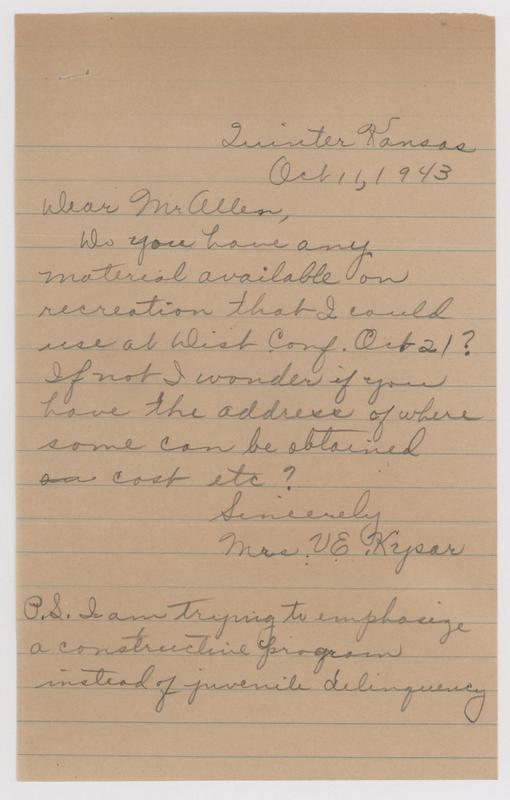 Quinter Kansas
Oct 11, 1943
Dear Mr Allen,
Do you have any
material available on
recreation that I could
use at Dist Conf. Oct 21?
If not I wonder if you
have the address of where
some can be obtained
cost etc?
Sincerely
Mrs. V E Kysar
P.S. I am trying to emphasize
a constructive program
instead of juvenile delinquency